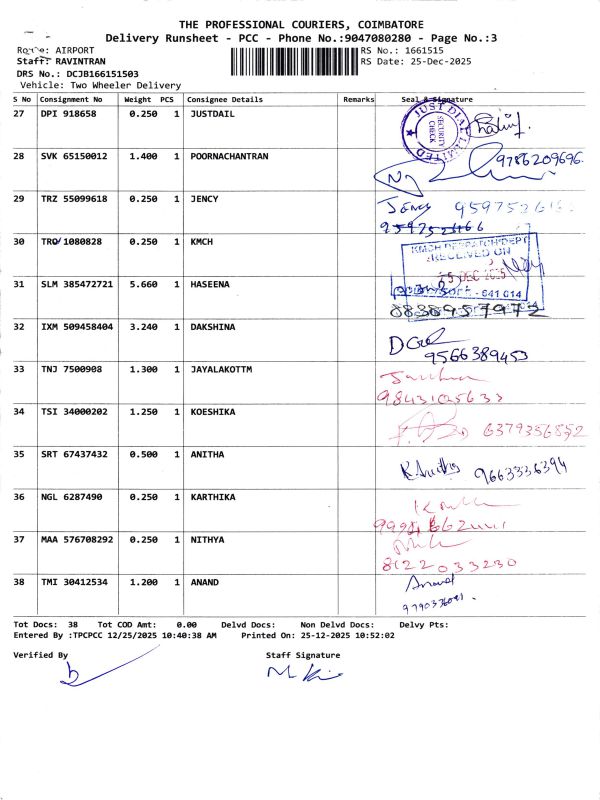 THE PROFESSIONAL COURIERS, COIMBATORE
Delivery Runsheet - PCC - Phone No.:9047080280 - Page No.:3
Route: AIRPORT
RS No.: 1661515
Staff: RAVINTRAN
RS Date: 25-Dec-2025
DRS No.: DCJB166151503
Vehicle: Two Wheeler Delivery
S No Consignment No Weight PCS Consignee Details Remarks Seal & Signature
27 DPI 918658 0.250 1 JUSTDAIL
JUST DIAL LIMITED
SECURITY
CHECK
28 SVK 65150012 1.400 1 POORNACHANTRAN
9786209696
29 TRZ 55099618 0.250 1 JENCY
Jency
30 TRQ 1080828 0.250 1 KMCH
KMCH DESPATCH DEPT
RECEIVED ON
25 DEC 2025
- 641 014
31 SLM 385472721 5.660 1 HASEENA
8838957972
32 IXM 509458404 3.240 1 DAKSHINA
9566389453
33 TNJ 7500908 1.300 1 JAYALAKOTTM
9843105633
34 TSI 34000202 1.250 1 KOESHIKA
6379356852
35 SRT 67437432 0.500 1 ANITHA
K. Anitha 9663336394
36 NGL 6287490 0.250 1 KARTHIKA
37 MAA 576708292 0.250 1 NITHYA
8122033230
38 TMI 30412534 1.200 1 ANAND
Anand
Tot Docs: 38 Tot COD Amt: 0.00 Delvd Docs: Non Delvd Docs: Delvy Pts:
Entered By :TPCPCC 12/25/2025 10:40:38 AM Printed On: 25-12-2025 10:52:02
Verified By Staff Signature